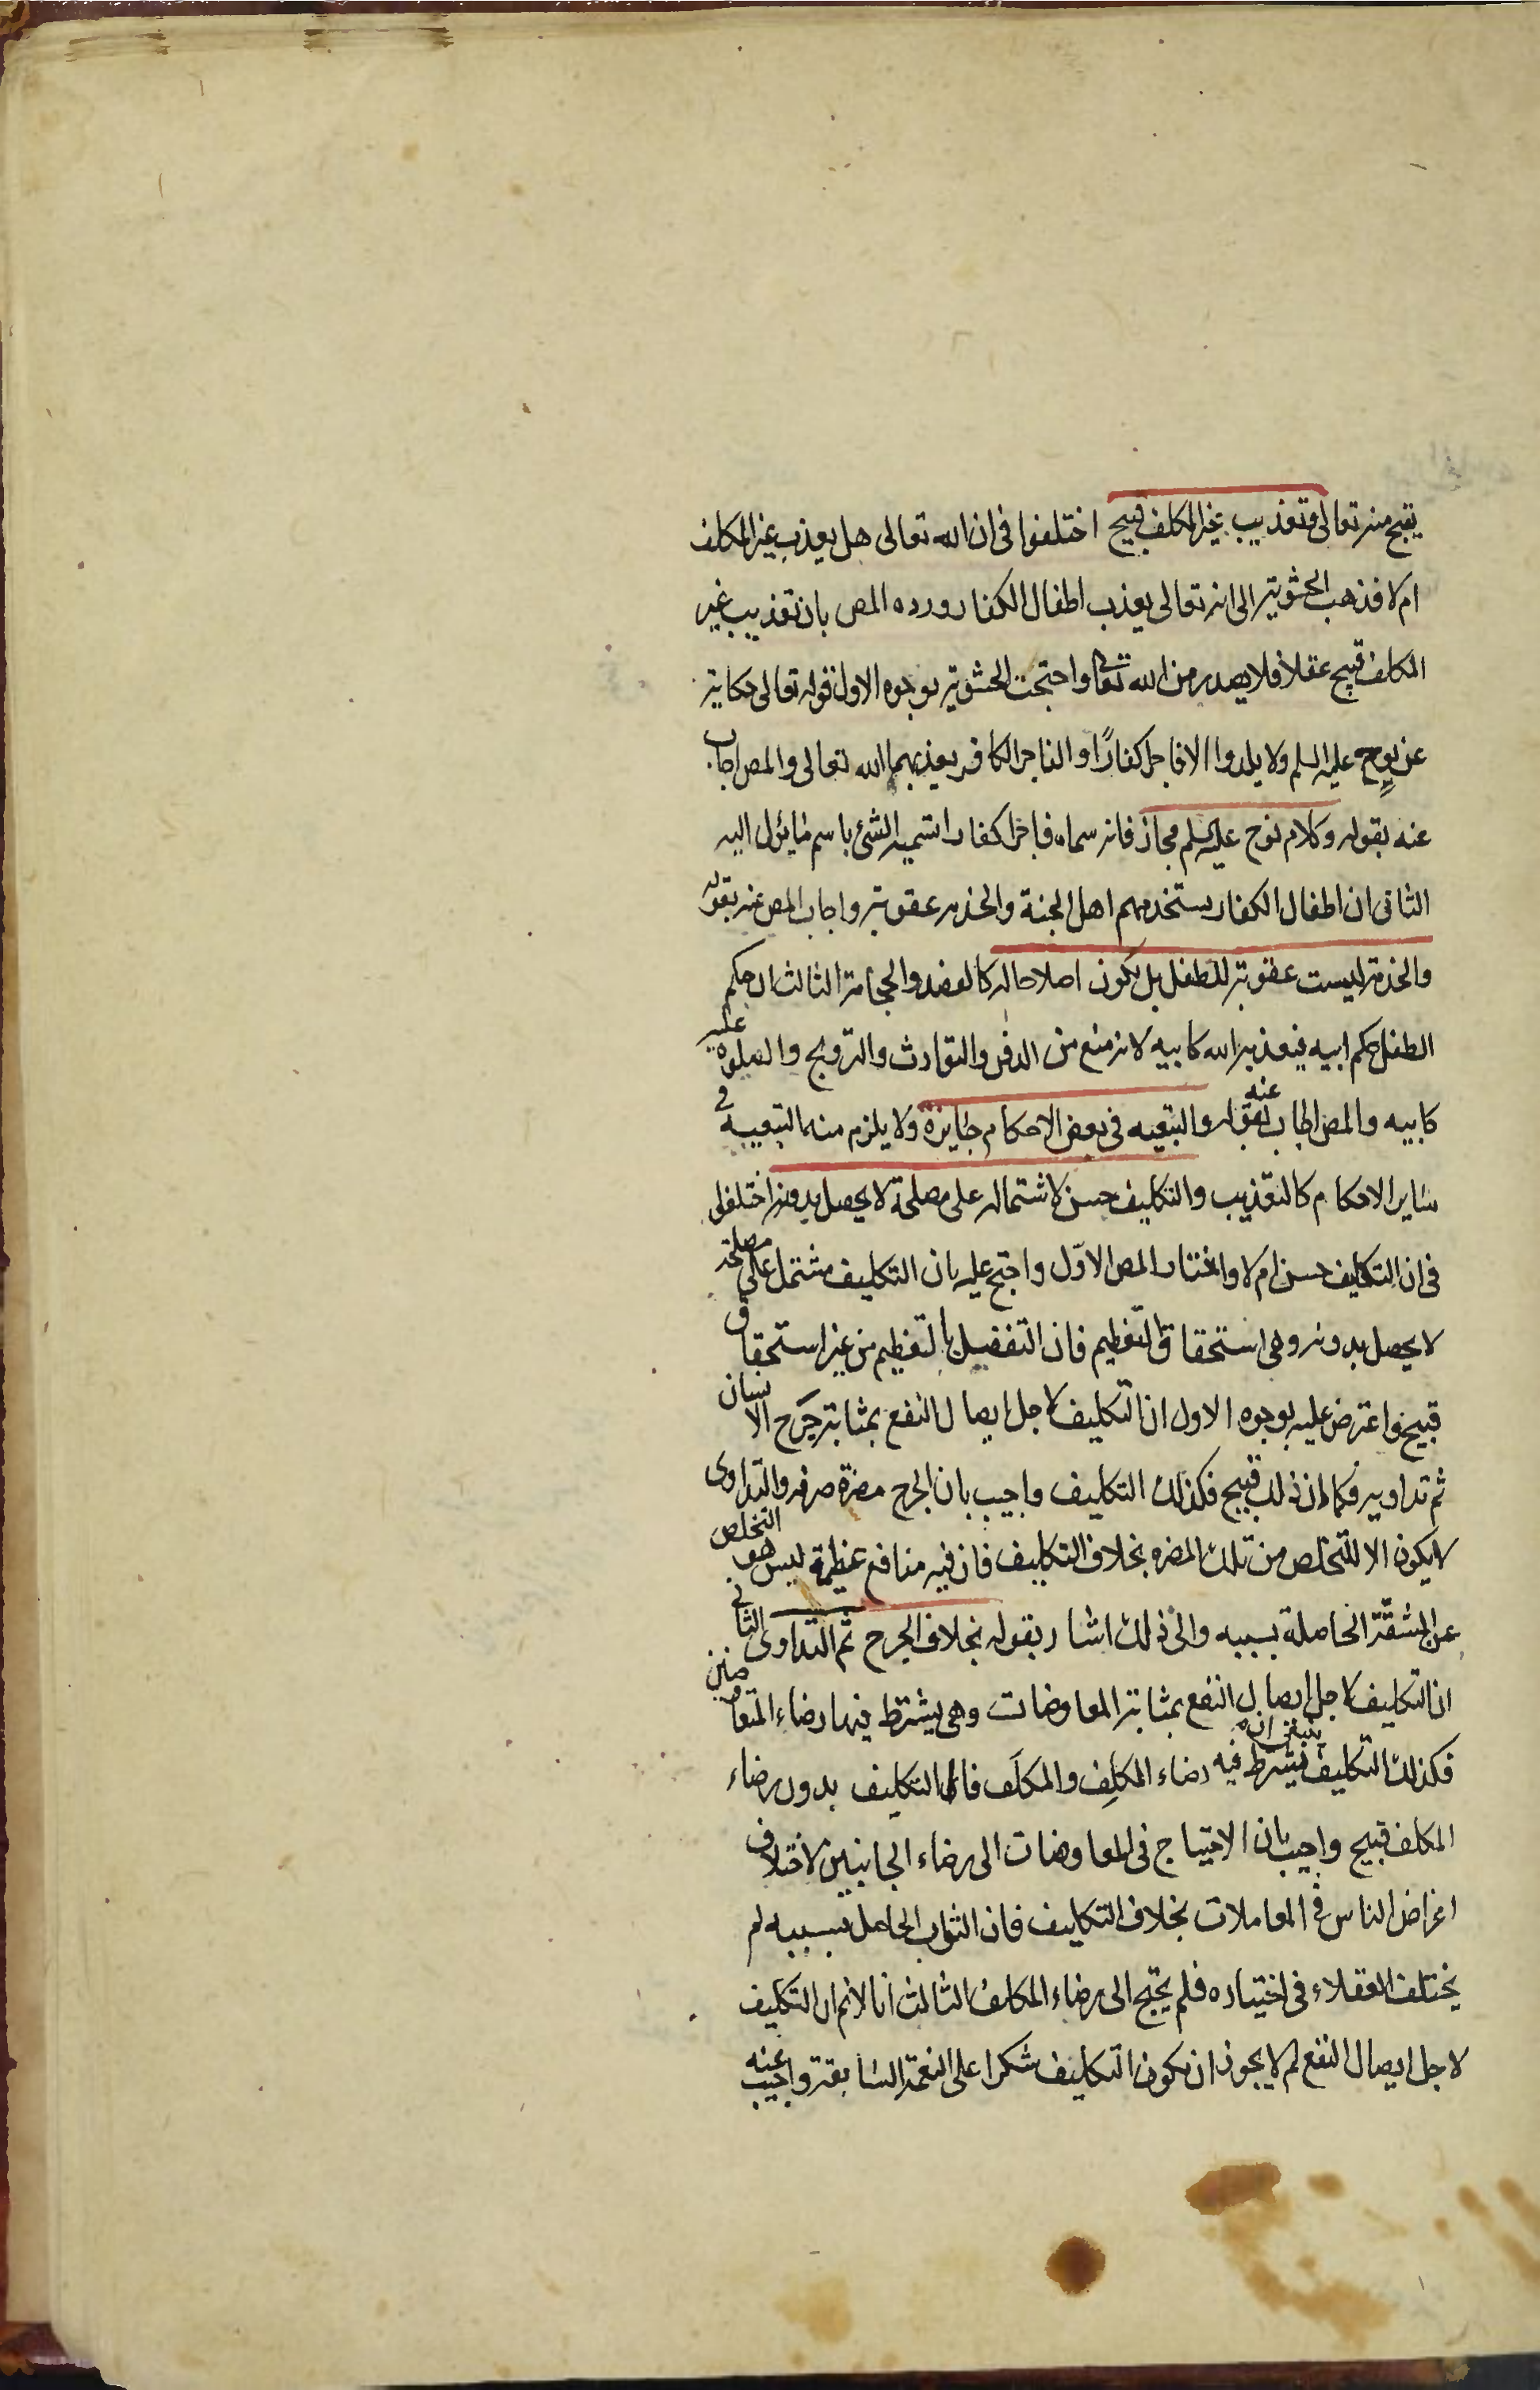 يقبح منه تعالى وتعذيب غير المكلف قبيح اختلفوا فى ان الله تعالى هل يعذب غير المكلف
ام لا فذهب الحشوية الى انه تعالى يعذب اطفال الكفار ورده المص بان تعذيب غير
المكلف قبيح عقلا فلا يصدر من الله تعالى واحتجت الحشوية بوجوه الاول قوله تعالى حكاية
عن نوح عليه السلم ولا يلدوا الا فاجرا كفارًا والفاجر الكافر يعذبهما الله تعالى والمص اجاب
عنه بقوله وكلام نوح عليه السلم مجاز فانه سماه فاجرا كفارا تسمية الشئ باسم ما يؤل اليه
الثانى ان اطفال الكفار يستخدمهم اهل الجنة والخدمه عقوبة واجاب المص عنه بقوله
والخدمة ليست عقوبة للطفل بل يكون اصلاحا له كالفصد والحجامة الثالث ان حكم
الطفل حكم ابيه فيعذبه الله كابيه لانه منع من الدفن والتوارث والتزويج والصلوه عليه
كابيه والمص اجاب عنه بقوله والتبعيه فى بعض الاحكام جايزة ولا يلزم منه التبعية فى
ساير الاحكام كالتعذيب والتكليف حسن لاشتماله على مصلحة لا يحصل بدونه اختلفوا
فى ان التكليف حسن ام لا واختار المص الاوّل واحتج عليه بان التكليف مشتمل على مصلحة
لا يحصل بدونه وهى استحقاق التعظيم فان التفضيل بالتعظيم من غير استحقاق
قبيح واعترض عليه بوجوه الاول ان التكليف لاجل ايصال النفع بمثابة جَرح الانسان
ثم تداويه فكما ان ذلك قبيح فكذلك التكليف واجيب بان الجرح مضرة صرفه والتداوى
لا يكون الا للتخلص من تلك المضره بخلاف التكليف فان فيه منافع عظيمة ليس هو التخلص
عن المشقّة الحاصلة بسببه والى ذلك اشار بقوله بخلاف الجرح ثم التداوى الثانى
ان التكليف لاجل ايصال النفع بمثابة المعاوضات وهى يشترط فيها رضاء المتعاوضين
فكذلك التكليف ينبغى ان يشترط فيه رضاء المكلِف والمكلَف فاذا التكليف بدون رضاء
المكلف قبيح واجيب بان الاحتياج فى المعاوضات الى رضاء الجانبين لاختلاف
اغراض الناس فى المعاملات بخلاف التكليف فان الثواب الحاصل بسببه لم
يختلف العقلاء فى اختياره فلم يحتج الى رضاء المكلف الثالث انا لا نم ان التكليف
لاجل ايصال النفع لم لا يجوز ان يكون التكليف شكرا على النعمة السابقة واجيب عنه